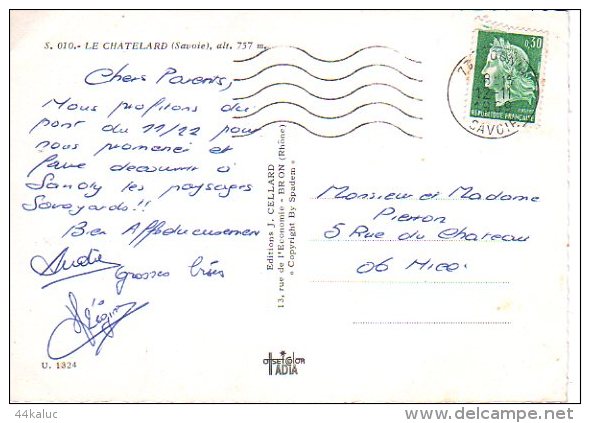 S. 010.- LE CHATELARD (Savoie), alt. 757 m.
Chers Parents,
Nous profitons du
pont du 11/22 pour
nous promener et
faire decouvrir à
Sandy les paysages
Savoyards!!
Bien Affectueusement
grosses bises
Régine
U. 1324
Editions J. CELLARD
13, rue de l'Economie - BRON (Rhône)
« Copyright By Spadem »
OFFSET COLOR
IADIA
0,30
REPUBLIQUE FRANÇAISE
73
12 11
SAVOIE
Monsieur et Madame
Pierron
5 Rue du Chateau
06 Nice.
44kaluc
www.delcampe.net